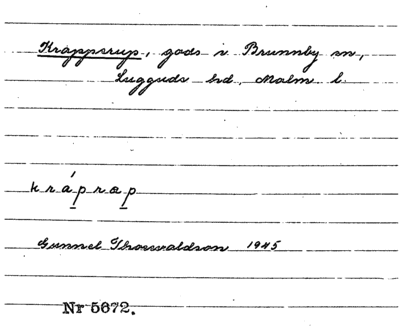 Krapperup, gods i Brunnby sn,
Luggude hd, Malm. l.
kráprœp
Gunnel Thorwaldson 1945
Nr 5672.